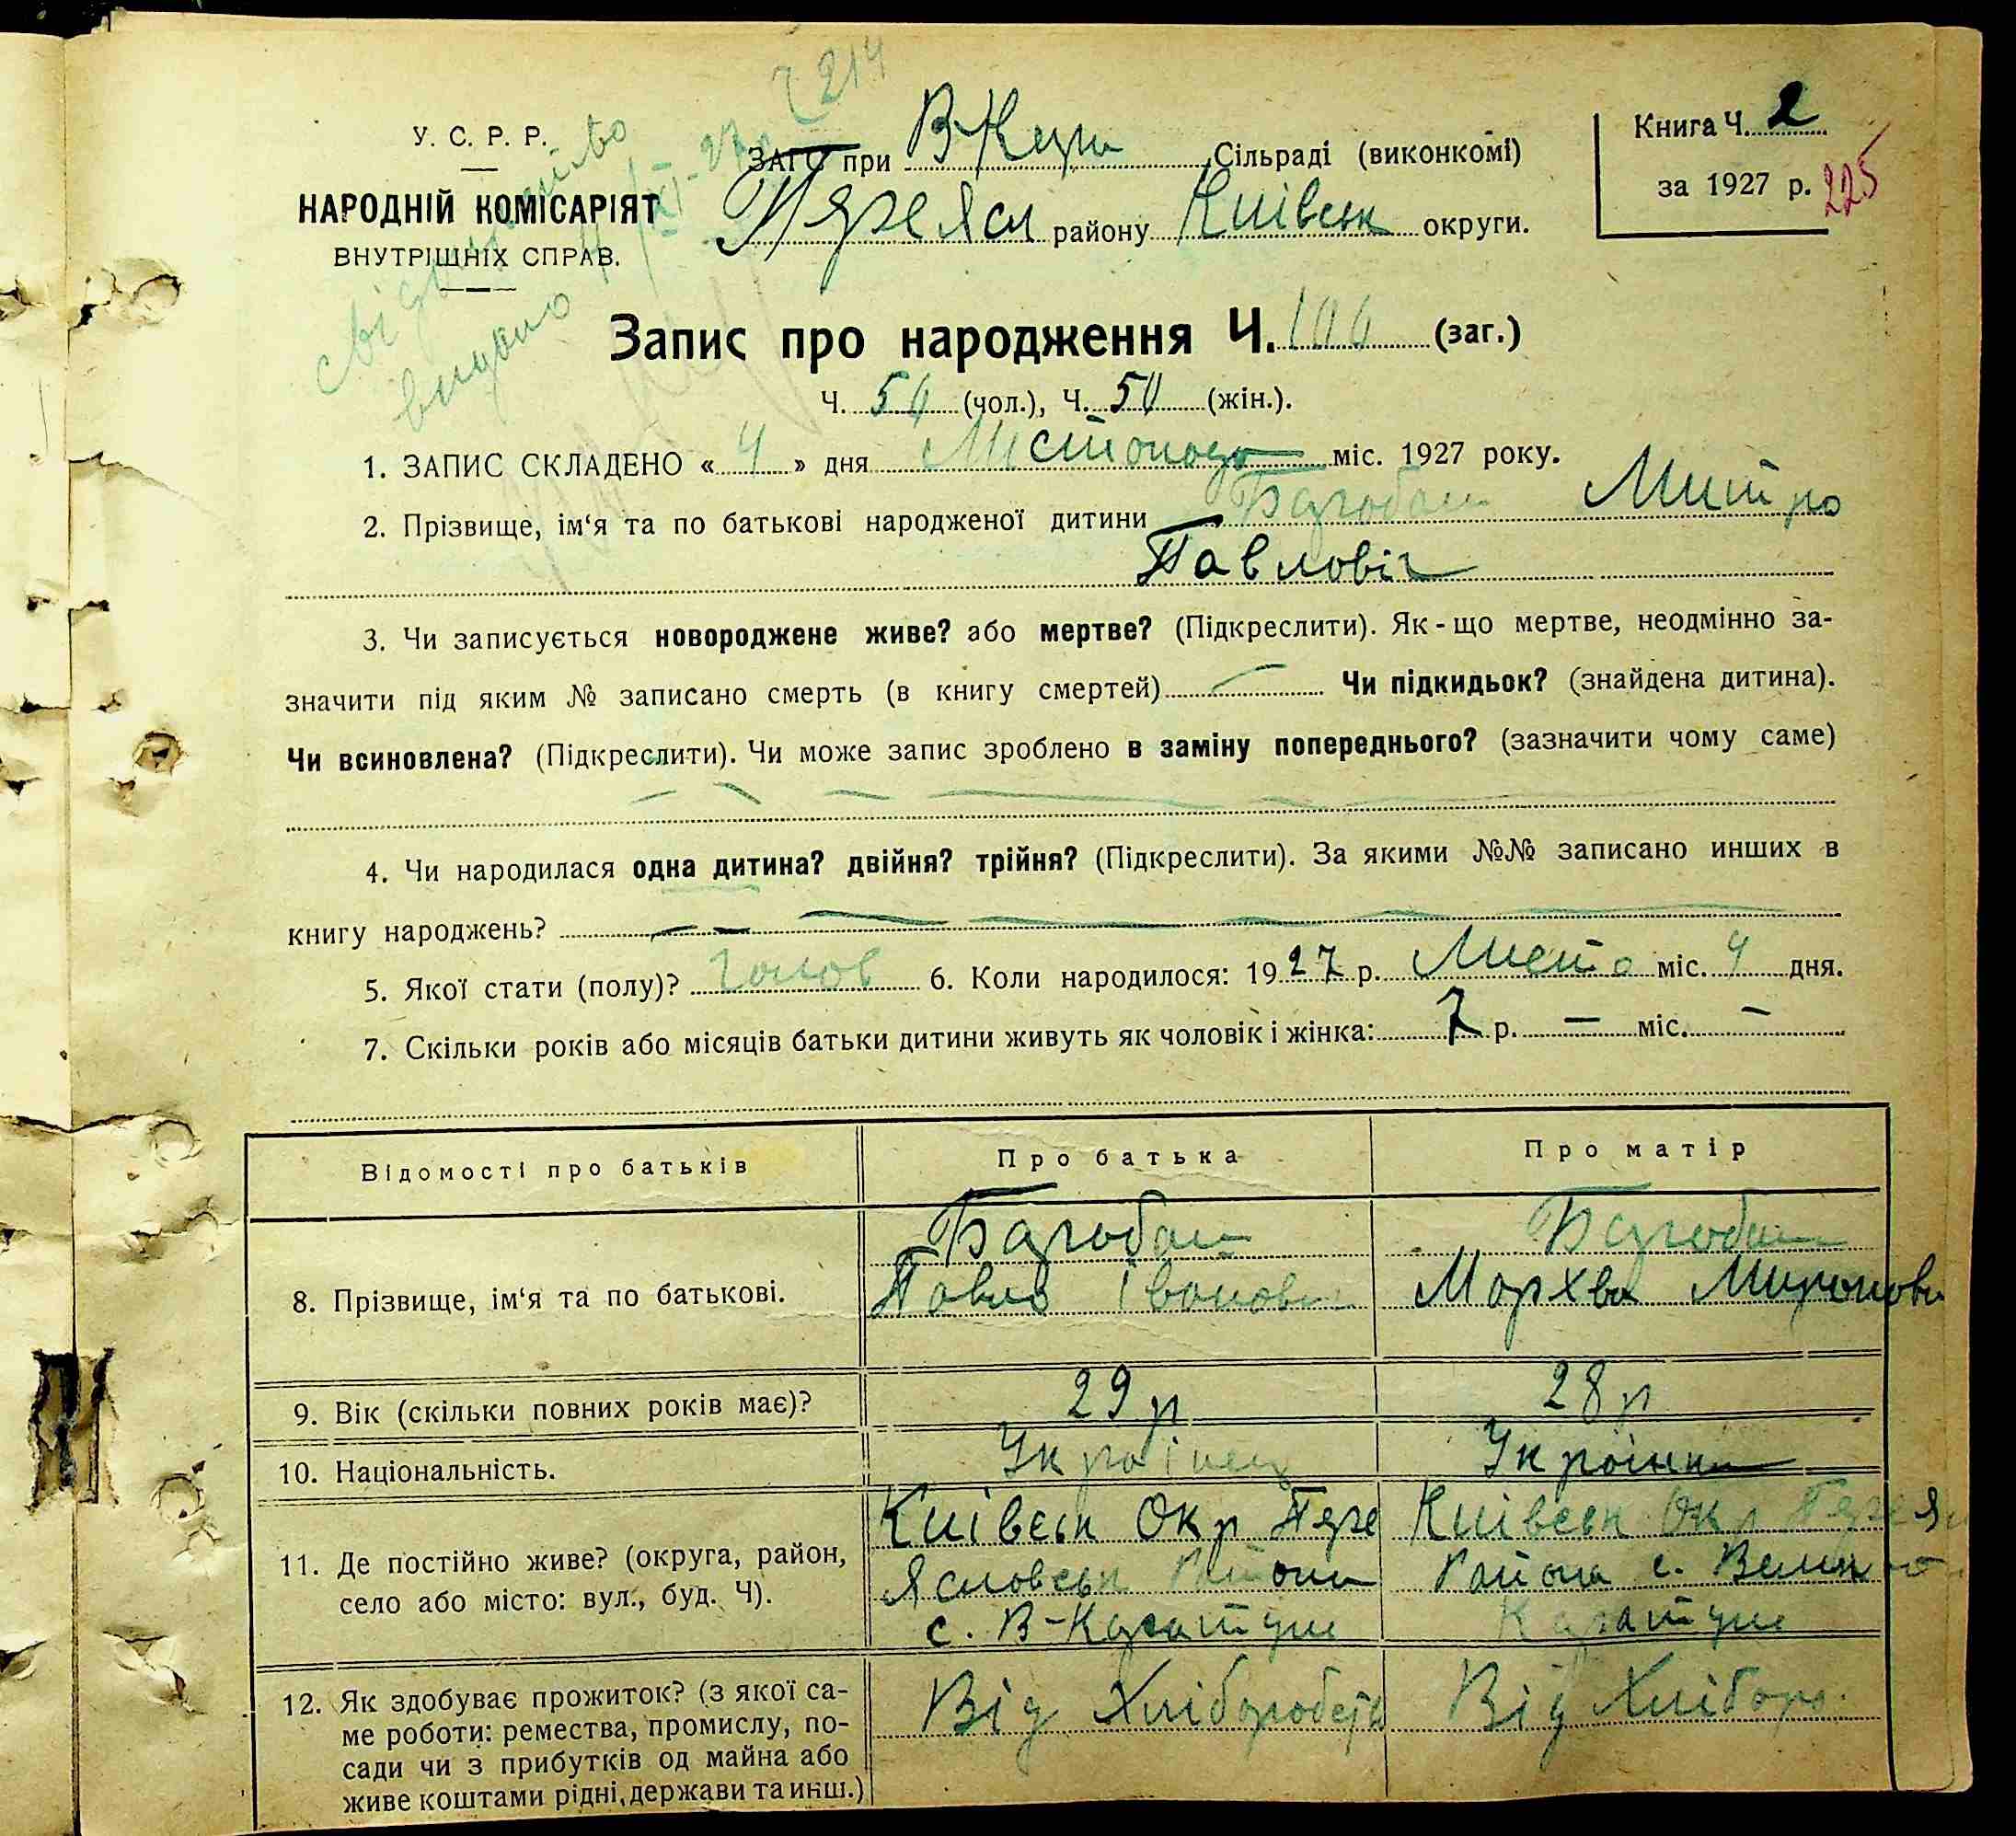 214
У. С. Р. Р.
НАРОДНІЙ КОМІСАРІЯТ
ВНУТРІШНІХ СПРАВ.
ЗАГС при В-Кара Сільраді (виконкомі)
Переясл району Київськ округи.
Книга Ч. 2
за 1927 р. 225
свідоцтво
видано
Запис про народження Ч. 106 (заг.)
Ч. 56 (чол.), Ч. 50 (жін.).
1. ЗАПИС СКЛАДЕНО « 4 » дня Листопада міс. 1927 року.
2. Прізвище, ім‘я та по батькові народженої дитини Митро
Павловіч
3. Чи записується новороджене живе? або мертве? (Підкреслити). Як-що мертве, неодмінно за-
значити під яким № записано смерть (в книгу смертей) Чи підкидьок? (знайдена дитина).
Чи всиновлена? (Підкреслити). Чи може запис зроблено в заміну попереднього? (зазначити чому саме)
4. Чи народилася одна дитина? двійня? трійня? (Підкреслити). За якими №№ записано инших в
книгу народжень?
5. Якої стати (полу)? Чолов 6. Коли народилося: 1927 р. Листо міс. 4 дня.
7. Скільки років або місяців батьки дитини живуть як чоловік і жінка: 7 р. — міс. —
Відомості про батьків Про батька Про матір
8. Прізвище, ім‘я та по батькові.
Павло Іванови
Морхва Миронови
9. Вік (скільки повних років має)? 29 р 28 р
10. Національність. Українец Українка
11. Де постійно живе? (округа, район,
село або місто: вул., буд. Ч).
Київськ Окр Пере
Ясловськ Района
с. В-Каратуле
Київськ Окр Перея
Района с. Велико
Каратуле
12. Як здобуває прожиток? (з якої са-
ме роботи: ремества, промислу, по-
сади чи з прибутків од майна або
живе коштами рідні, держави та инш.)
Від Хліборобств
Від Хлібор.